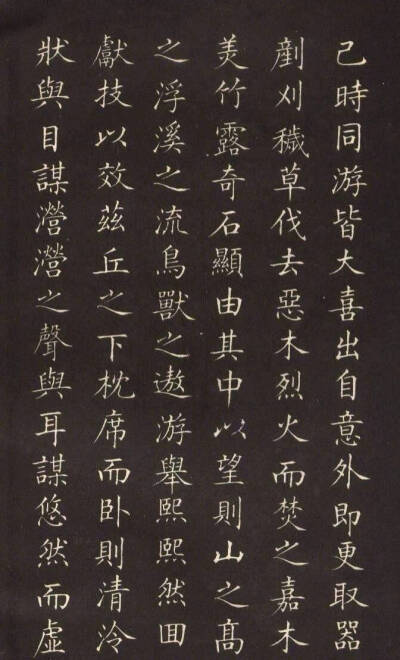 己時同游皆大喜出自意外即更取器
剷刈穢草伐去惡木烈火而焚之嘉木
美竹露奇石顯由其中以望則山之髙
之浮溪之流鳥獸之遨游舉熙熙然囬
獻技以效茲丘之下枕席而卧則清泠
狀與目謀瀯瀯之聲與耳謀悠然而虛